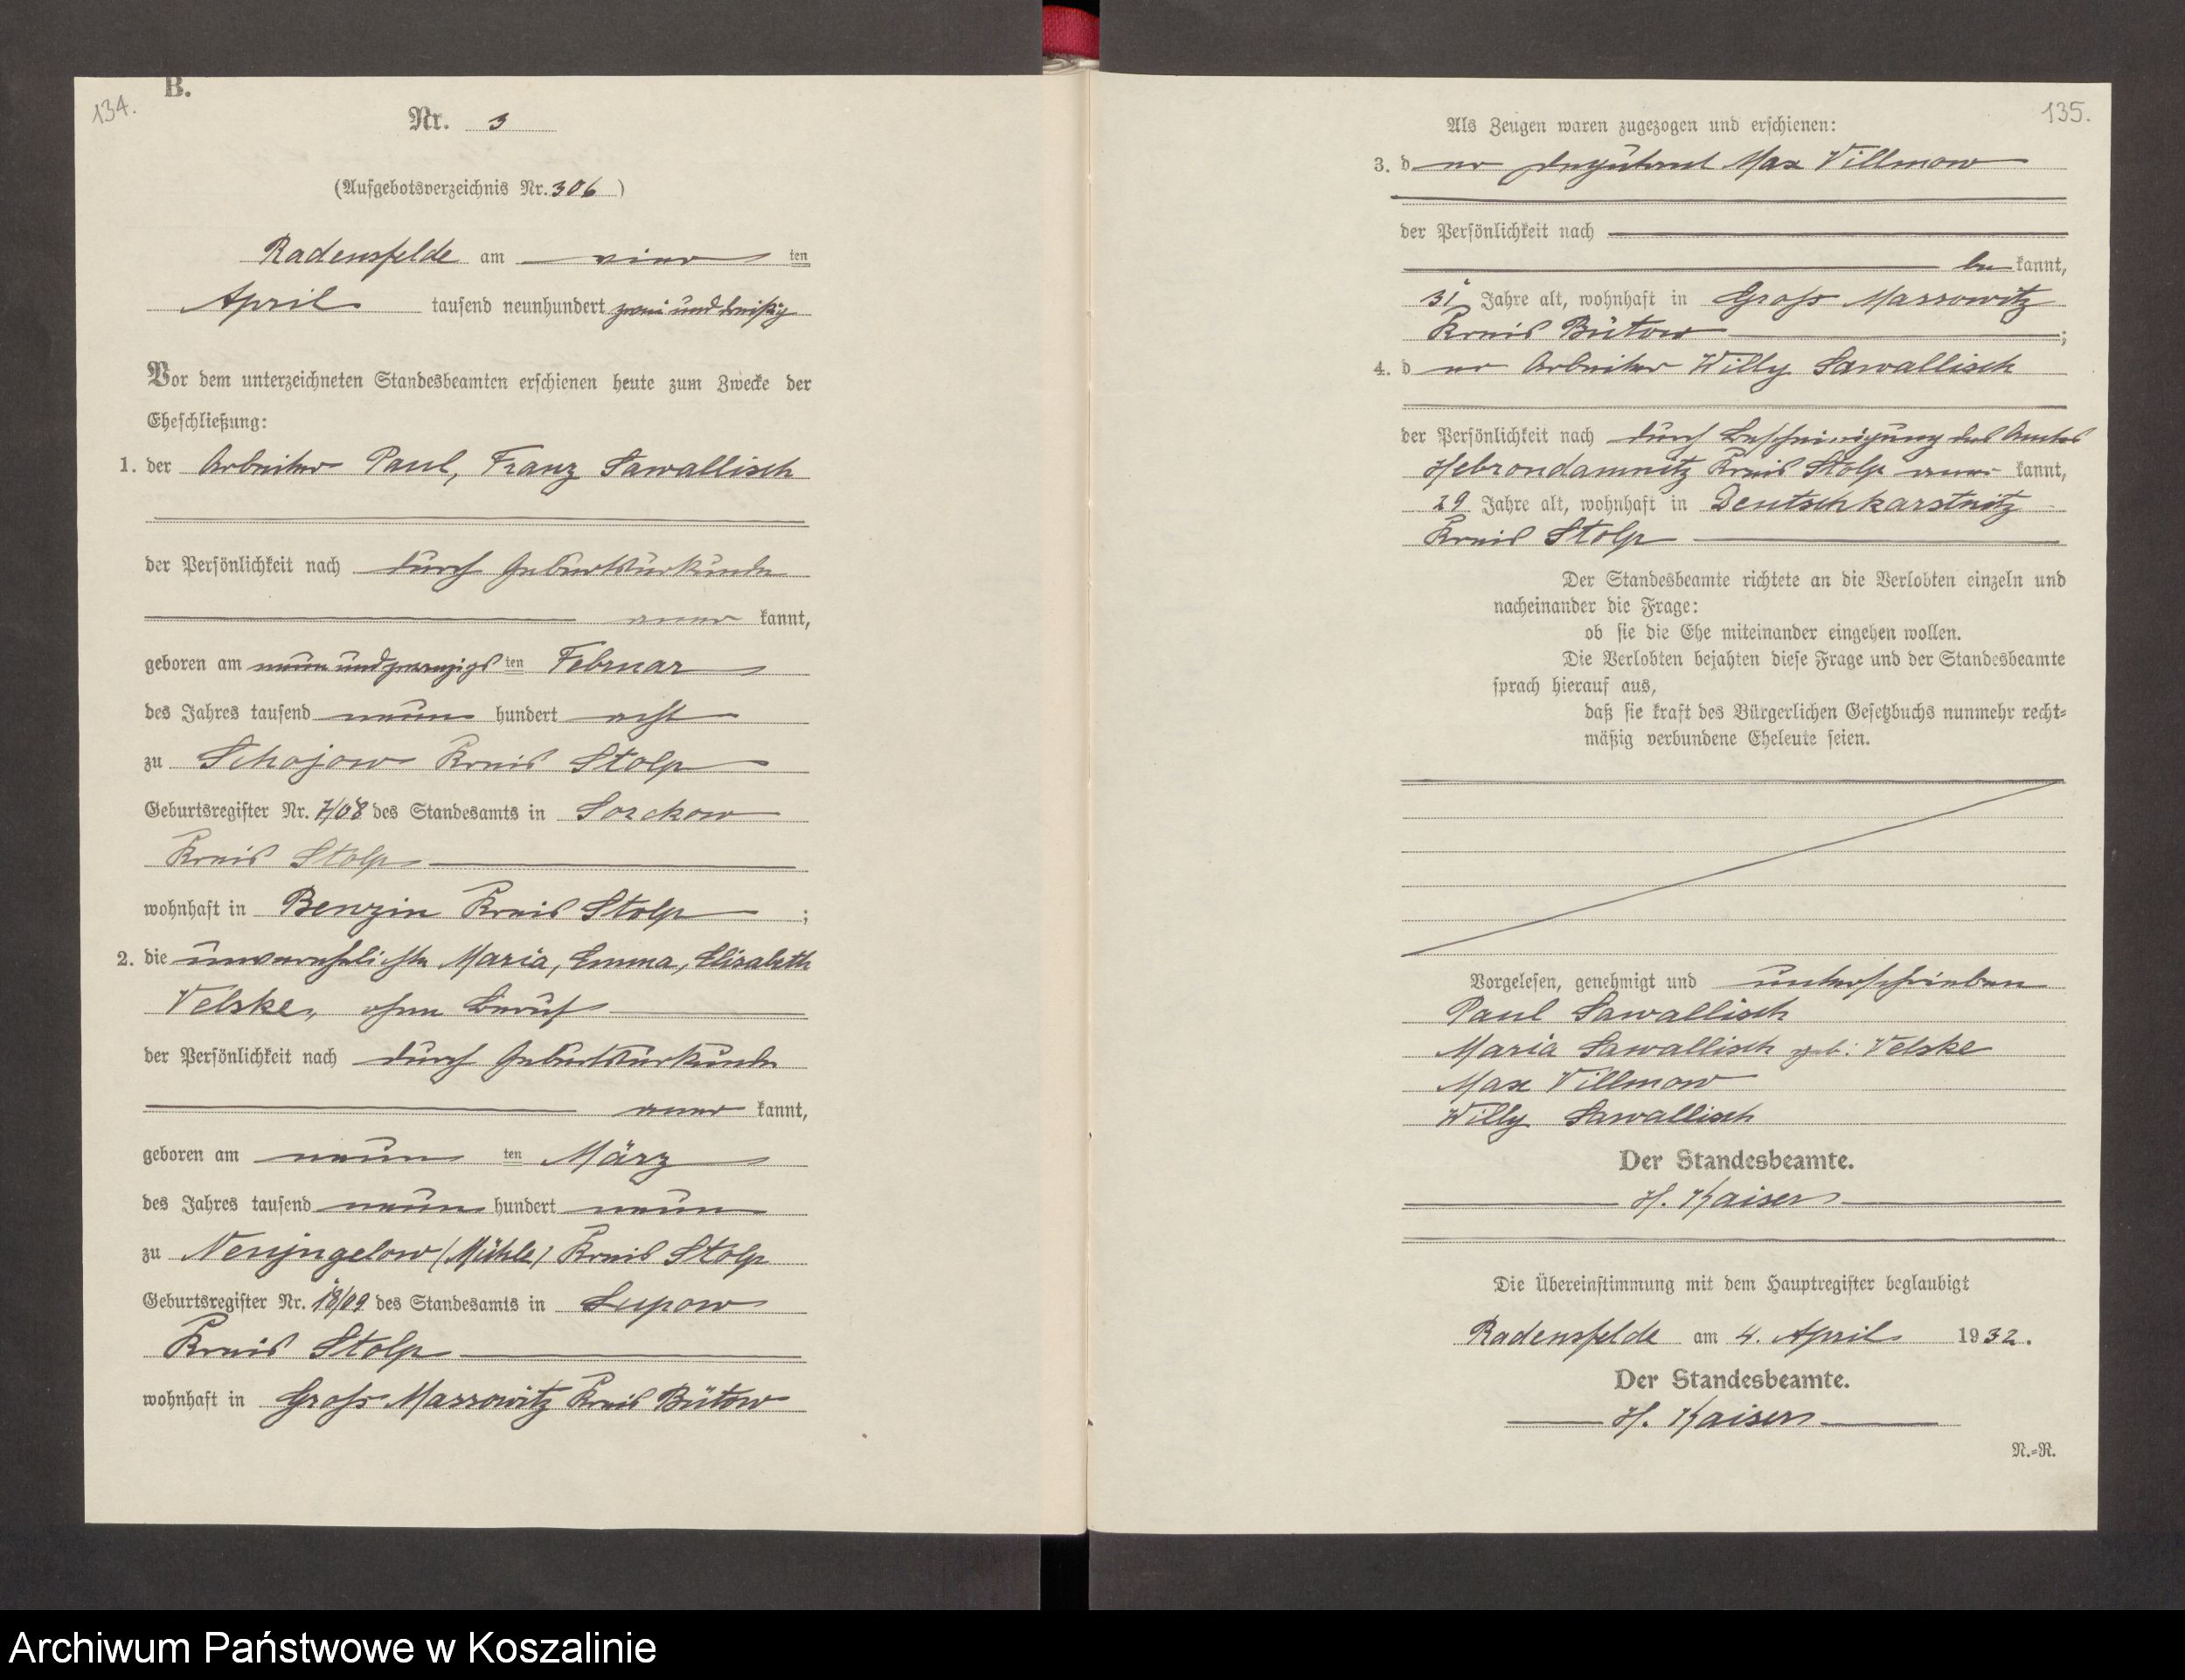 134.
B.
Nr. 3
(Aufgebotsverzeichnis Nr. 306)
Radensfelde am vier ten
April tausend neunhundert zwei und dreißig
Vor dem unterzeichneten Standesbeamten erschienen heute zum Zwecke der
Eheschließung:
1. der Arbeiter Paul, Franz Sawallisch
der Persönlichkeit nach durch Geburtsurkunde
aner kannt,
geboren am neun und zwanzigs ten Februar
des Jahres tausend neun hundert acht
zu Schojow Kreis Stolp
Geburtsregister Nr. 7/08 des Standesamts in Sorchow
Kreis Stolp
wohnhaft in Benzin Kreis Stolp ;
2. die unverehelichte Maria, Emma, Elisabeth
Velske, ohne Beruf
der Persönlichkeit nach durch Geburtsurkunde
aner kannt,
geboren am neun ten März
des Jahres tausend neun hundert neun
zu Neujugelow (Mühle) Kreis Stolp
Geburtsregister Nr. 18/09 des Standesamts in Lupow
Kreis Stolp
wohnhaft in Gross Massowitz Kreis Bütow
135.
Als Zeugen waren zugezogen und erschienen:
3. d er Max Villmow
der Persönlichkeit nach
be kannt,
31 Jahre alt, wohnhaft in Gross Massowitz
Kreis Bütow ;
4. d er Arbeiter Willy Sawallisch
der Persönlichkeit nach durch Bescheinigung des Amtes
Hebrondamnitz Kreis Stolp aner kannt,
29 Jahre alt, wohnhaft in Deutschkarstnitz
Kreis Stolp
Der Standesbeamte richtete an die Verlobten einzeln und
nacheinander die Frage:
ob sie die Ehe miteinander eingehen wollen.
Die Verlobten bejahten diese Frage und der Standesbeamte
sprach hierauf aus,
daß sie kraft des Bürgerlichen Gesetzbuchs nunmehr recht=
mäßig verbundene Eheleute seien.
Vorgelesen, genehmigt und unterschrieben
Paul Sawallisch
Maria Sawallisch geb: Velske
Max Villmow
Willy Sawallisch
Der Standesbeamte.
H. Kaiser
Die Übereinstimmung mit dem Hauptregister beglaubigt
Radensfelde am 4. April 1932.
Der Standesbeamte.
H. Kaiser
N.=R.
Archiwum Państwowe w Koszalinie